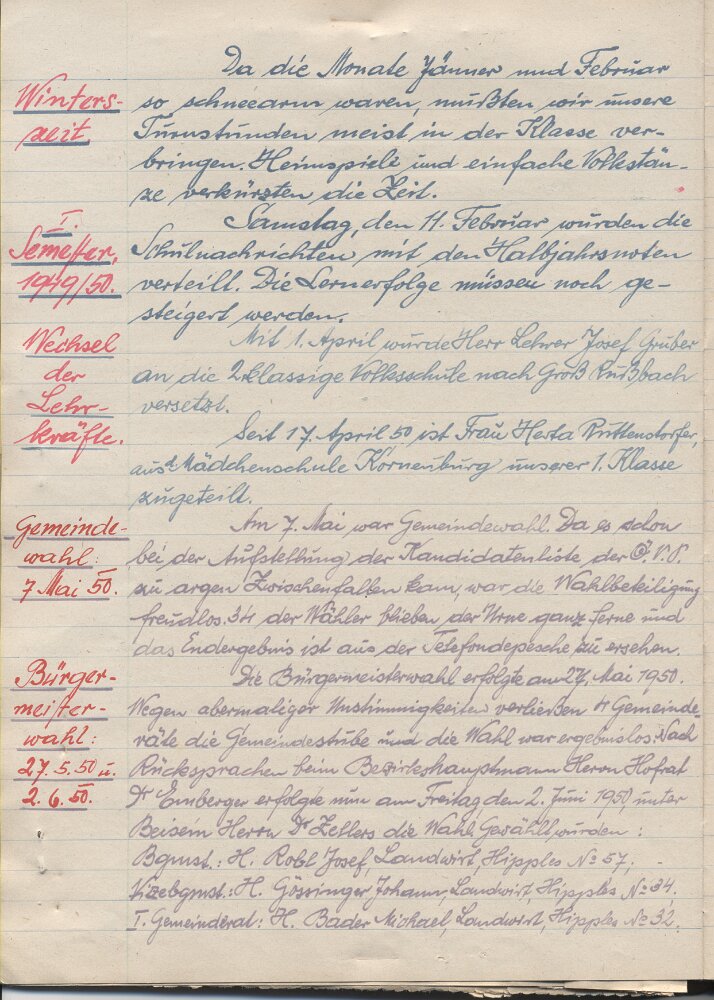 Winters-
zeit.
Da die Monate Jänner und Februar
so schneearm waren, mußten wir unsere
Turnstunden meist in der Klasse ver-
bringen. Heimspiele und einfache Volkstän-
ze verkürzten die Zeit.
I.
Semester,
1949/50.
Samstag, den 11. Februar wurden die
Schulnachrichten mit den Halbjahrsnoten
verteilt. Die Lernerfolge müssen noch ge-
steigert werden.
Wechsel
der
Lehr-
kräfte.
Mit 1. April wurde Herr Lehrer Josef Gruber
an die 2klassige Volksschule nach Groß Rußbach
versetzt.
Seit 17. April 50 ist Frau Herta Ruttenstorfer,
aus d. Mädchenschule Korneuburg unserer 1. Klasse
zugeteilt.
Gemeinde-
wahl:
7 Mai 50.
Am 7. Mai war Gemeindewahl. Da es schon
bei der Aufstellung der Kandidatenliste der Ö.V.P.
zu argen Zwischenfällen kam, war die Wahlbeteiligung
freudlos. 34 der Wähler blieben der Urne ganz ferne und
das Endergebnis ist aus der Telefondepesche zu ersehen.
Bürger-
meister-
wahl:
27.5.50 u.
2.6.50.
Die Bürgermeisterwahl erfolgte am 27. Mai 1950.
Wegen abermaliger Unstimmigkeiten verließen 4 Gemeinde-
räte die Gemeindestube und die Wahl war ergebnislos. Nach
Rücksprachen beim Bezirkshauptmann Herrn Hofrat
Dr Emberger erfolgte nun am Freitag den 2. Juni 1950, unter
Beisein Herrn Dr Zellers die Wahl. Gewählt wurden:
Bgmst.: H. Robl Josef, Landwirt, Hipples No 57,
Vizebgmst.: H. Gössinger Johann, Landwirt, Hipples No 34,
I. Gemeinderat: H. Bader Michael, Landwirt, Hipples No 32.